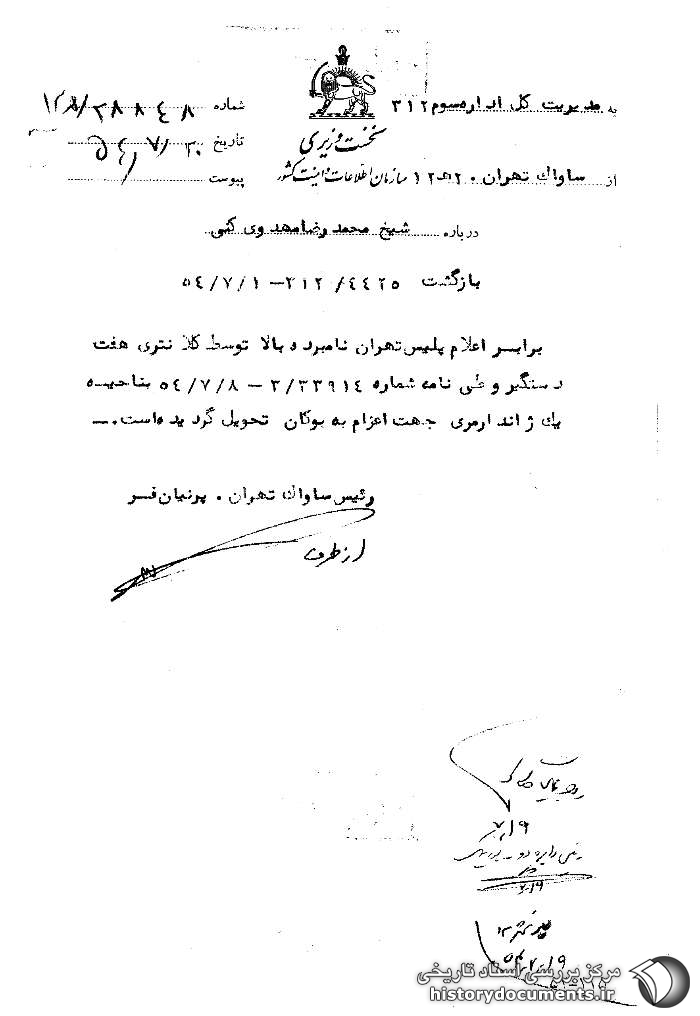 به مدیریت کل اداره سوم ۳۱۲
شماره
نخست وزیری
تاریخ ۵۴/۷/
از ساواک تهران . ۱۲ سازمان اطلاعات و امنیت کشور
پیوست
درباره شیخ محمد رضا مهدوی کنی
بازگشت ۲۱۲/۴۴۲۵ – ۵۴/۷/۱
برابر اعلام پلیس تهران نامبرده بالا توسط کلانتری هفت
دستگیر و طی نامه شماره ۳/۳۳۹۱۴ – ۵۴/۷/۸ بناحیه
یک ژاندارمری جهت اعزام به بوکان تحویل گردیده است.
رئیس ساواک تهران . پرنیان فر
از طرف
۷/۱۹
۷/۱۹
مرکز بررسی اسناد تاریخی
historydocuments.ir